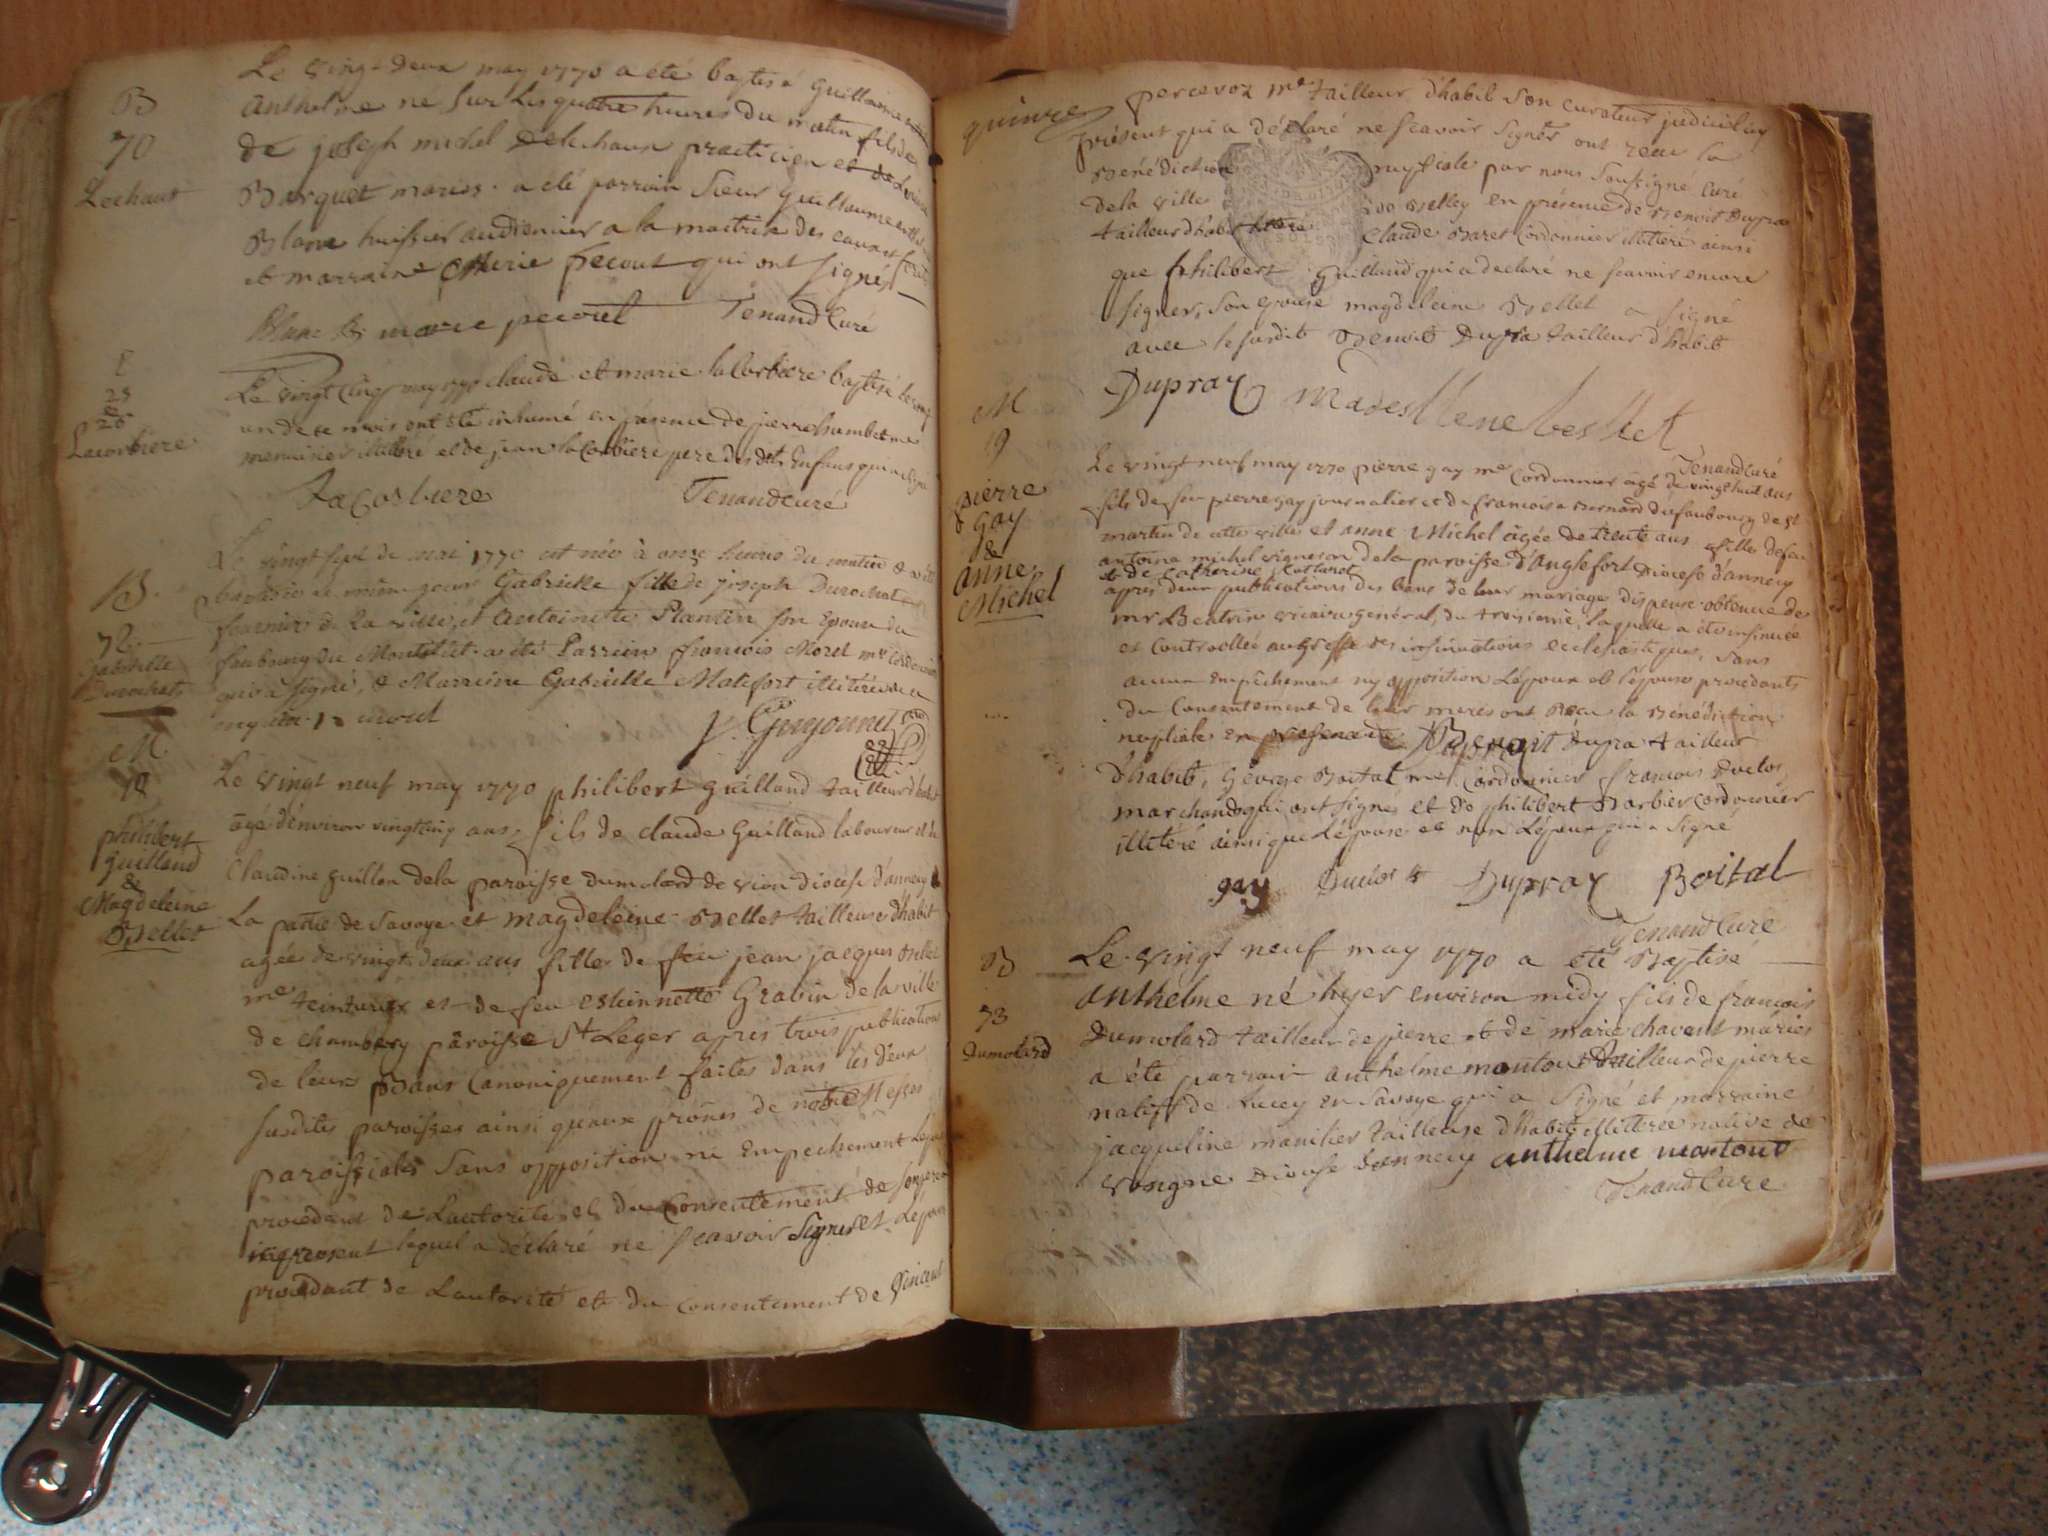 B
70
Lechaut
Le vingt deux may 1770 a été baptisé Guillaume
anthelme né sur les quatre heures du matin fils de
de joseph michel Delechaux practicien et de Louise
Barquet mariés. a été parrain sieur Guillaume
Blanc huissier audiencier a la maitrise des eaux et forets
et marraine marie pecout qui ont signés
Blanc marie pecout Tenand Curé
E
25
&
26
Lacorbiere
Le vingt cinq may 1770 claude et marie la Corbiere baptisé le vingt
un de ce mois ont été inhumé en présence de pierre humbert me
menuisier illitéré et de jean la Corbiere pere des dits Enfans qui a signé
LaCorbiere Tenand curé
B.
72.
Gabrielle
Durochat
Le vingt sept de mai 1770 est née à onze heures du matin & a été
baptisée le même jour Gabrielle fille de joseph Durochat
fournier de la ville, et Antoinette Plantin son Epouse du
faubourg du . a été Parrain françois Morel mre Cordonnier
qui a signé, & Marraine Gabrielle Matefort illitérée de ce
morel Guyonnet
M
18
philibert
guilland
&
Magdeleine
Bellet
Le vingt neuf may 1770 philibert guilland tailleur d'habit
agé d'environ vingt cinq ans, fils de claude Guilland laboureur et de
Claudine guillon dela paroisse dumolard de vion diocèse d'annecy
La partie de Savoye et magdeleine Bellet tailleuse d'habit
agée de vingt deux ans fille de feu jean jacques Bellet
me teinturier et de feu estiennette Grabin de la ville
de chambery paroisse St Leger apres trois publications
de leurs Bans Canoniquement faites dans les deux
susdites paroisses ainsi qu'aux prônes de nôtre Messes
paroissiales sans opposition ni Empechement Lepoux
procedant de L'autorité et du Consentement de son pere
icy present lequel a déclaré ne sçavoir signer et Lepouse
procedant de L'autorité et du consentement de vincent
quinze
percevoz me tailleur d'habit son curateur judiciel icy
présent qui a déclaré ne scavoir signer ont recu la
Bénédiction nuptiale par nous soussigné Curé
dela ville de Belley en présence de Benoit Dupra
tailleur d'habit Claude Baret Cordonnier illitéré ainsi
que philibert Guilland qui a declaré ne scavoir encore
signer, son epouse magdeleine Bellet a signé
avec le susdit Benoit Dupra tailleur d'habit
Dupraz madesllene besllet
Tenand Curé
M
19
pierre
gay
&
anne
Michel
Le vingt neuf may 1770 pierre gay me Cordonnier agé de vingt huit ans
fils de feu pierre gay journalier et de francoise Bernard du faubourg de St
martin de cette ville et anne Michel agée de trente ans fille defeu
antoine michel vigneron dela paroisse d'Anglefort Diocese d'annecy
et de Catherine
apres deux publications des bans de leur mariage dispense obtenue de
mr Béatrix vicaire général, du troisième, laquelle a été insinuée
et Controollée au greffe des insinuations ecclesiastiques, sans
aucun Empêchement ny opposition Lépoux et l'épouse procedants
du Consentement de leur meres ont Recu la Bénédiction
nuptiale en présence de Benoit Dupra tailleur
d'habit, George Boital me Cordonnier francois Duclos
marchand qui ont signés et de philibert Barbier cordonnier
illitéré ainsi que Lépouse et non Lépoux qui a signé
gay Duclos Dupraz Boital
Tenand Curé
B
73
Dumolard
Le vingt neuf may 1770 a été Baptisé
anthelme né hyer environ midy fils de francois
Dumolard tailleur de pierre et de marie chavent mariés
a été parrain anthelme montout tailleur de pierre
natif de Lucey en Savoye qui a Signé et marraine
jacqueline manilier tailleuse d'habit illitérée native de
vongne Diocese d'annecy anthelme montout
Tenand Curé